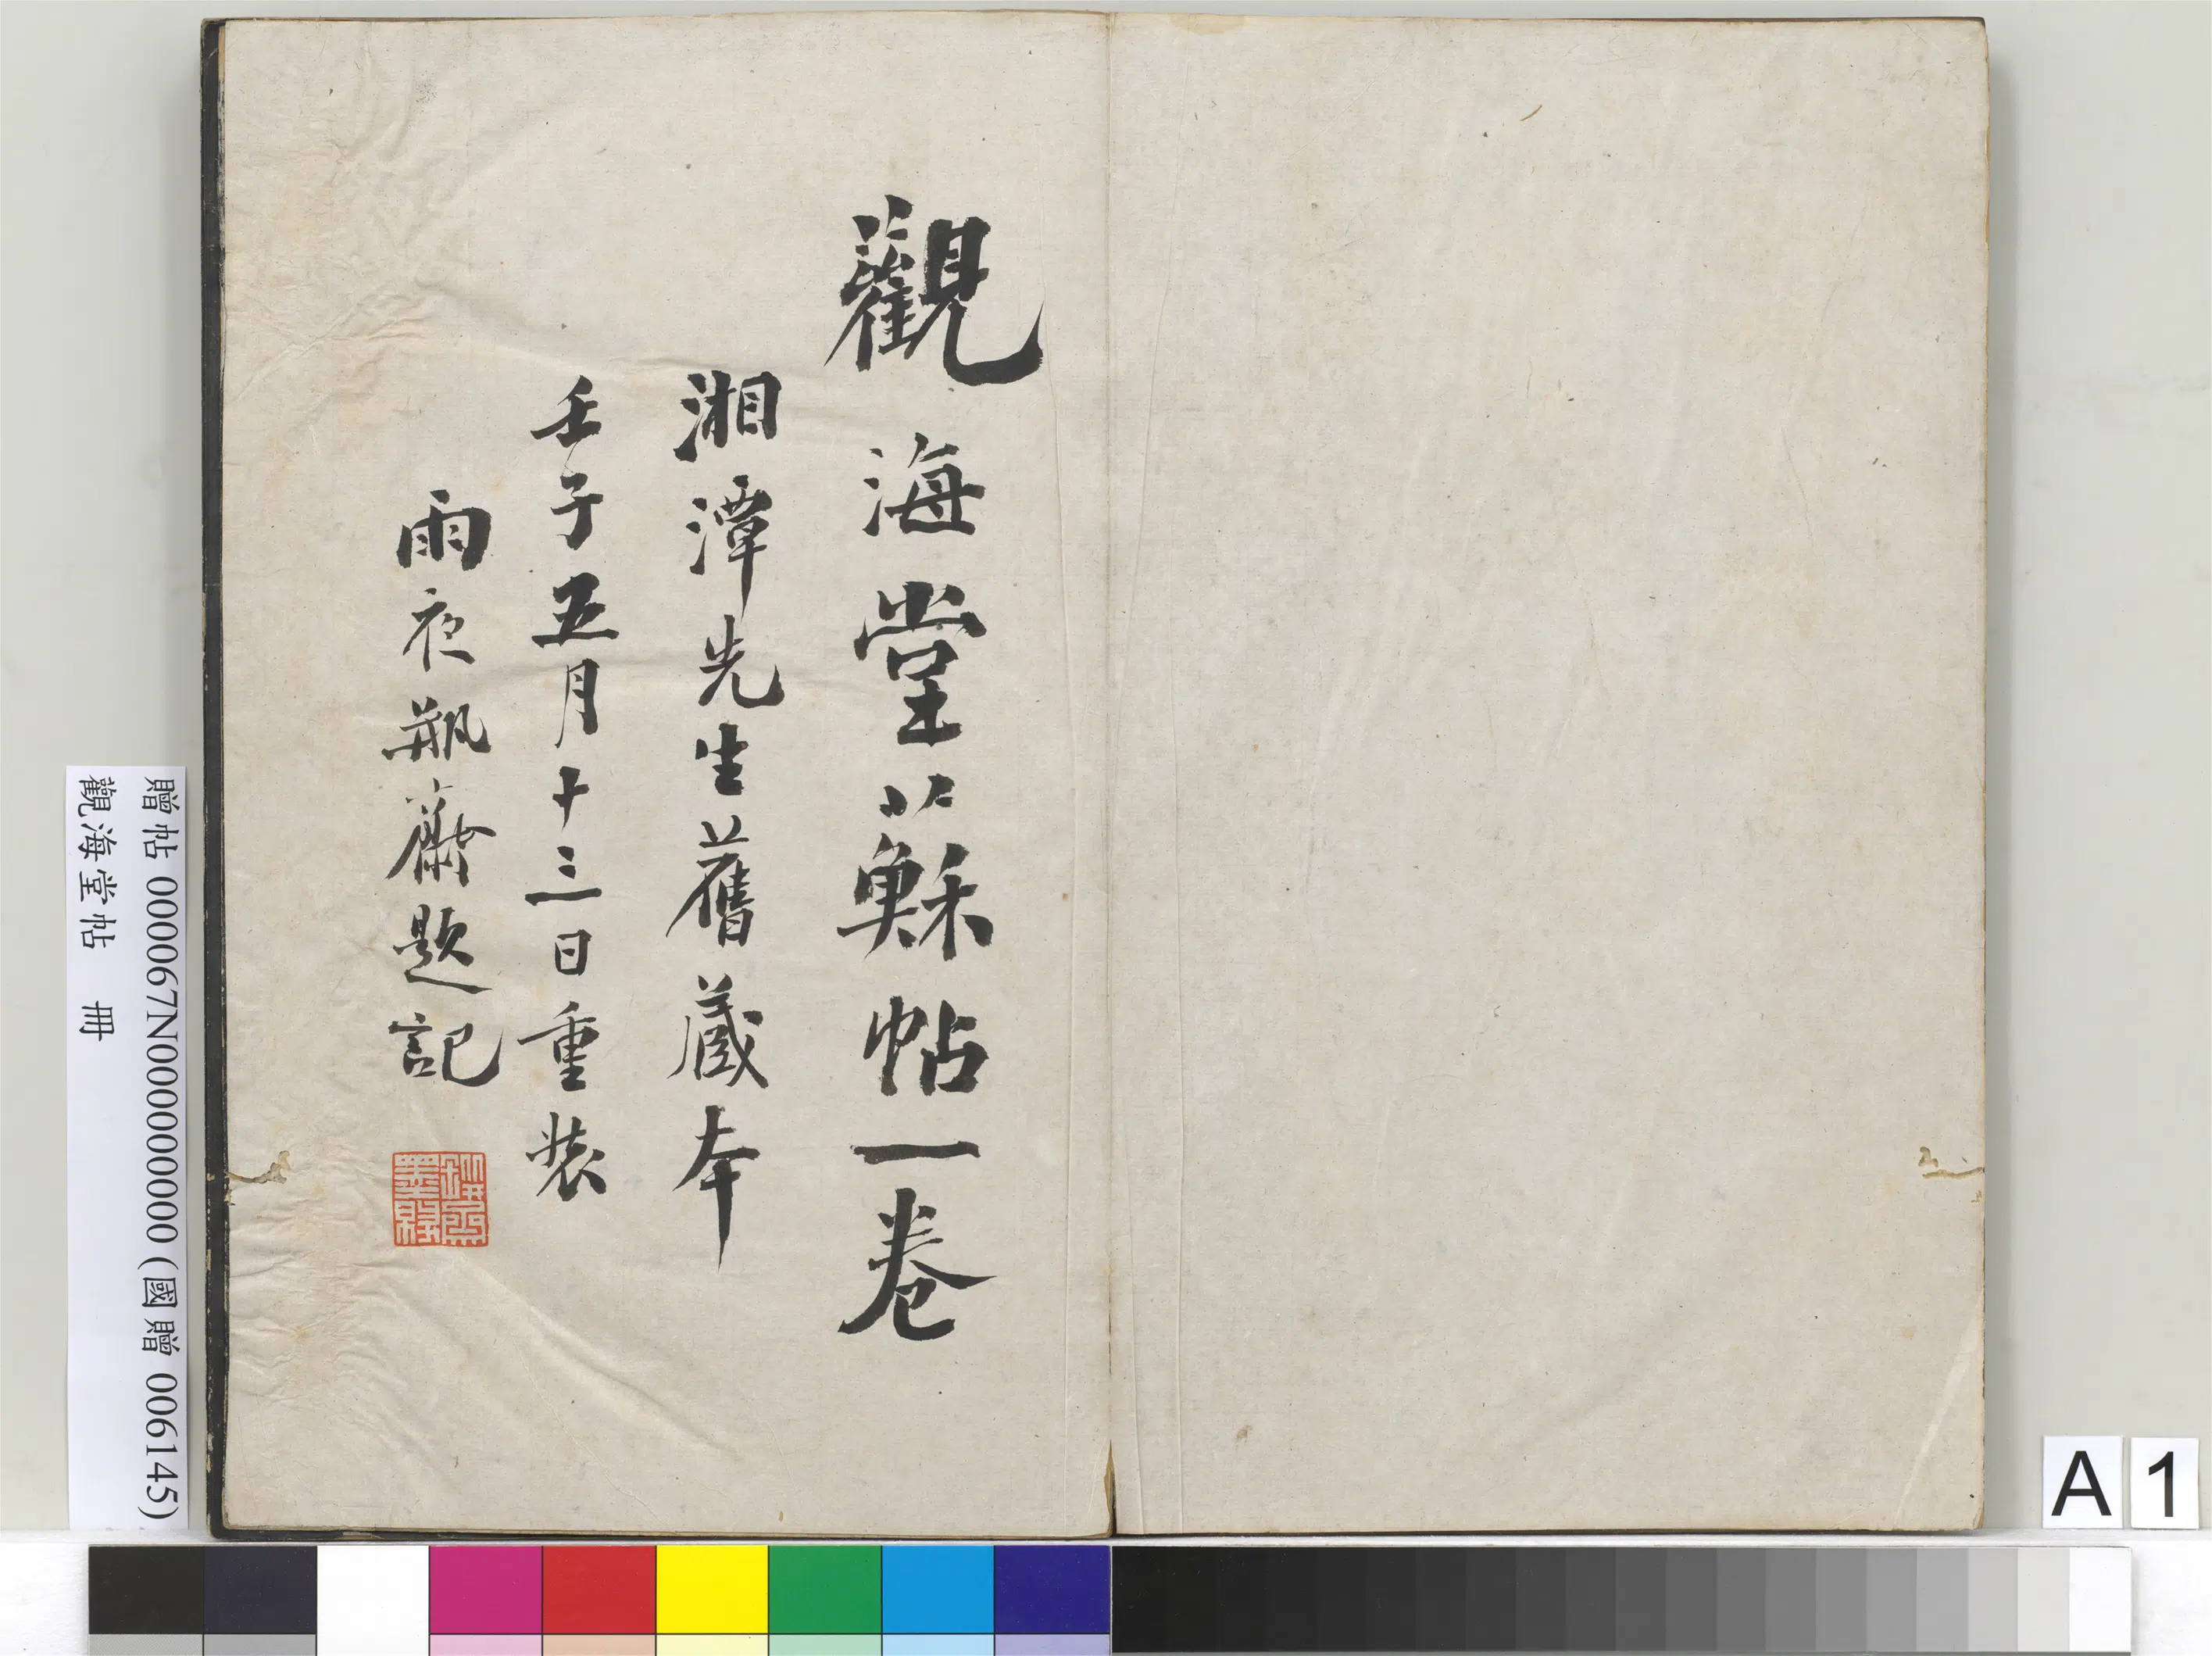 觀海堂蘇帖一卷
湘潭先生舊藏本
壬子五月十三日重裝
雨夜瓶齋題記
贈帖 000067N000000000 (國贈 006145)
觀海堂帖 冊
A 1